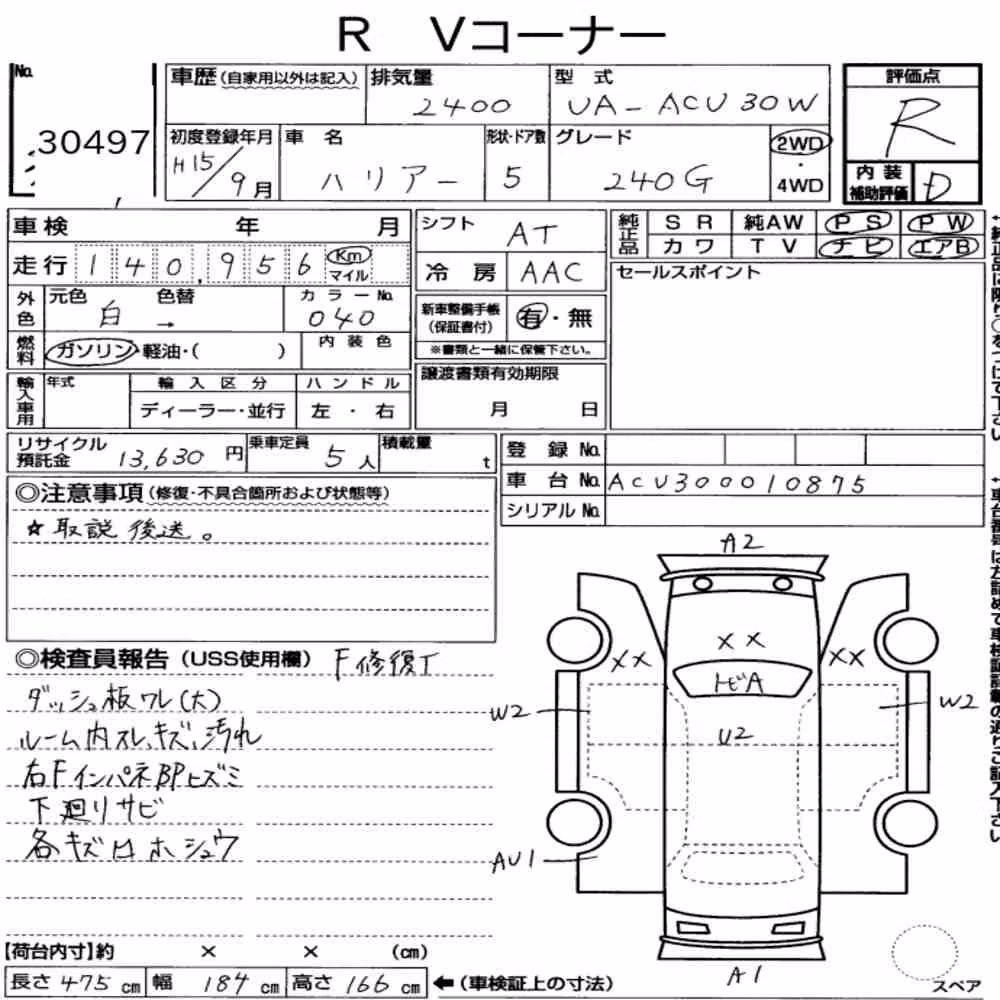 R Vコーナー
No. 30497
車歴(自家用以外は記入)
排気量 2400
型式 UA-ACU30W
評価点 R
初度登録年月 H15/9月
車名 ハリアー
形状・ドア数 5
グレード 240G
2WD・4WD
内装補助評価 D
車検 年 月
走行 140,956 Km マイル
外色 元色 白 → 色替 カラーNo. 040
燃料 ガソリン・軽油・( ) 内装色
輸入車用 年式 輸入区分 ディーラー・並行 ハンドル 左・右
シフト AT
冷房 AAC
新車整備手帳(保証書付) 有・無
※書類と一緒に保管下さい。
譲渡書類有効期限 月 日
純正品 SR 純AW PS PW
カワ TV ナビ エアB
セールスポイント
リサイクル預託金 13,630円
乗車定員 5人
積載量 t
登録No.
車台No. ACU300010875
シリアルNo.
◎注意事項(修復・不具合箇所および状態等)
☆取説後送。
◎検査員報告(USS使用欄) F修復工
ダッシュ板ワレ(大)
ルーム内スレ、キズ、汚れ
右FインパネBPヒズミ
下廻りサビ
各キズ凹ホシュウ
A2
XX
XX
XX
トビA
W2
U2
W2
AU1
A1
スペア
【荷台内寸】約 × × (cm)
長さ475cm 幅184cm 高さ166cm ←(車検証上の寸法)